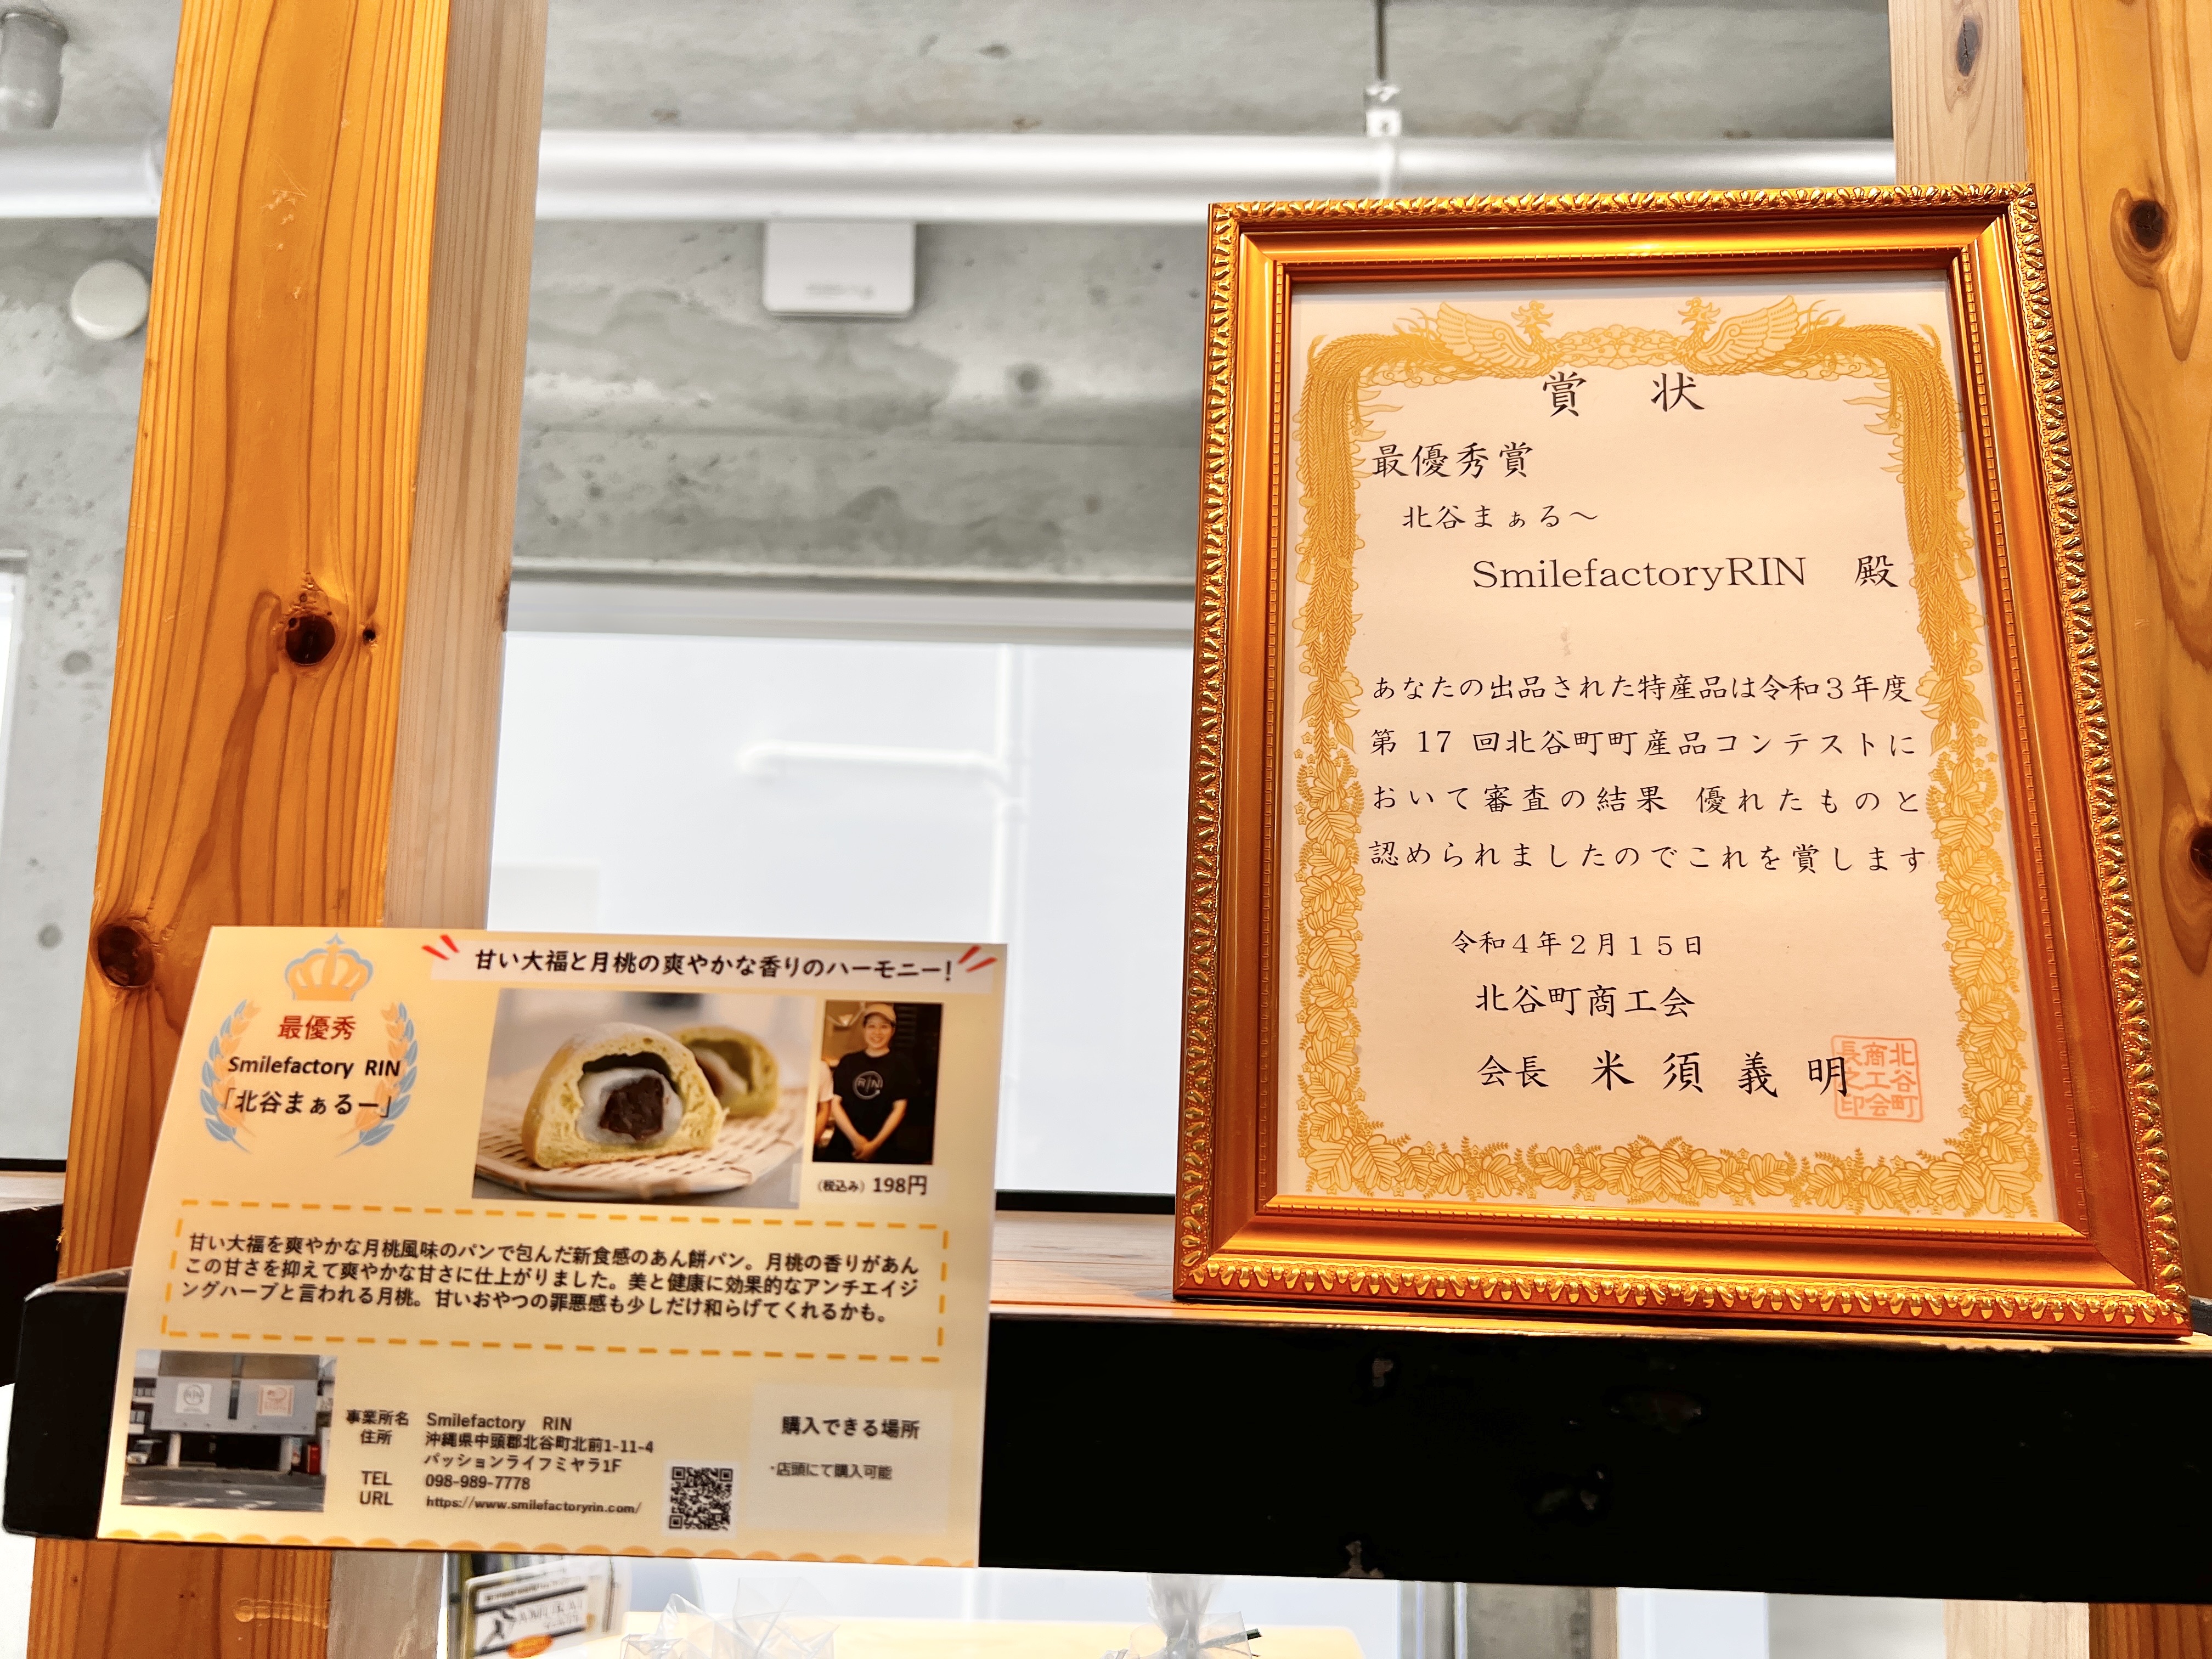 甘い大福と月桃の爽やかな香りのハーモニー!
最優秀
Smilefactory RIN
「北谷まぁるー」
RIN
(税込み) 198円
甘い大福を爽やかな月桃風味のパンで包んだ新食感のあん餅パン。月桃の香りがあん
この甘さを抑えて爽やかな甘さに仕上がりました。美と健康に効果的なアンチエイジ
ングハーブと言われる月桃。甘いおやつの罪悪感も少しだけ和らげてくれるかも。
RIN
事業所名 Smilefactory RIN
住所 沖縄県中頭郡北谷町北前1-11-4
パッションライフミヤラ1F
TEL 098-989-7778
URL https://www.smilefactoryrin.com/
購入できる場所
・店頭にて購入可能
賞 状
最優秀賞
北谷まぁる～
SmilefactoryRIN 殿
あなたの出品された特産品は令和3年度
第 17 回北谷町町産品コンテストに
おいて審査の結果 優れたものと
認められましたのでこれを賞します
令和4年2月15日
北谷町商工会
会長 米 須 義 明
北谷町
商工会
長之印